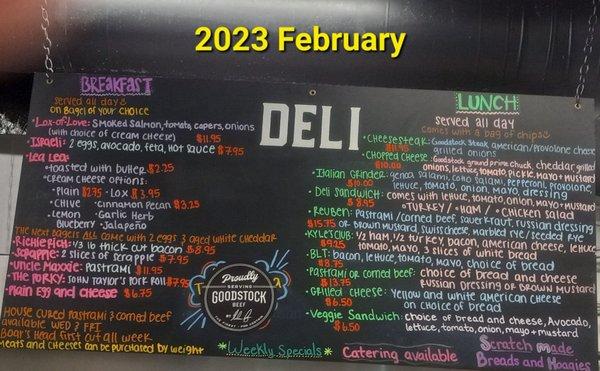 2023 February
DELI
BREAKFAST
served all day
on BAGEL of your CHOICE
• Lox-of-Love: SMOKED SALMON, tomato, capers, onions
(with choice of cream cheese) $11.95
• Israeli: 2 eggs, avocado, feta, HOT SAUCE $7.95
• Lea Lea:
• toasted with butter $2.25
• CREAM CHEESE OPTIONS:
• Plain $2.75 • Lox $3.95
• CHIVE • Cinnamon Pecan $3.25
• Lemon Blueberry • Garlic Herb
• Jalapeño
THE NEXT BAGELS ALL COME WITH 2 EGGS & AGED WHITE CHEDDAR
• RICHIE RICH: 1/3 lb thick cut bacon $8.95
• 2 slices of scrapple $7.95
• PASTRAMI $11.95
• THE PORKY: JOHN TAYLOR'S PORK ROLL $7.95
• Plain EGG and CHEESE $6.75
HOUSE CURED PASTRAMI & corned beef
available WED & FRI
Boar's Head first cut all week
meats and cheeses can be purchased by weight
Proudly
SERVING
GOODSTOCK
BEEF
*Weekly Specials*
LUNCH
served all day
comes with a bag of chips
• CHEESESTEAK: Goodstock Steak, american/provolone cheese
$11.95 grilled onions
• CHOPPED CHEESE: Goodstock ground prime chuck, cheddar, grilled
$10.00 onions, lettuce, tomato, pickle, mayo + mustard
• Italian Grinder: genoa salami, coho salami, pepperoni, provolone,
$10.00 lettuce, tomato, onion, mayo, dressing
• Deli Sandwich: comes with lettuce, tomato, onion, mayo + mustard
$8.95 • TURKEY / • HAM / • CHICKEN SALAD
• REUBEN: PASTRAMI/corned beef, sauerkraut, russian dressing
$15.75 or BROWN MUSTARD, swiss cheese, marbled rye/seeded rye
• KYLES CLUB: 1/2 ham, 1/2 turkey, bacon, american cheese, lettuce
$9.25 tomato, mayo, 3 slices of white bread
• BLT: bacon, lettuce, tomato, mayo, choice of bread
$8.75
• PASTRAMI or CORNED BEEF: choice of bread and cheese
$13.75 RUSSIAN DRESSING or BROWN MUSTARD
• GRILLED CHEESE: Yellow and white american cheese
$6.50 on choice of bread
• VEGGIE SANDWICH: choice of bread and cheese, Avocado,
$6.50 lettuce, tomato, onion, mayo + mustard
Catering available
Scratch made
Breads and Hoagies